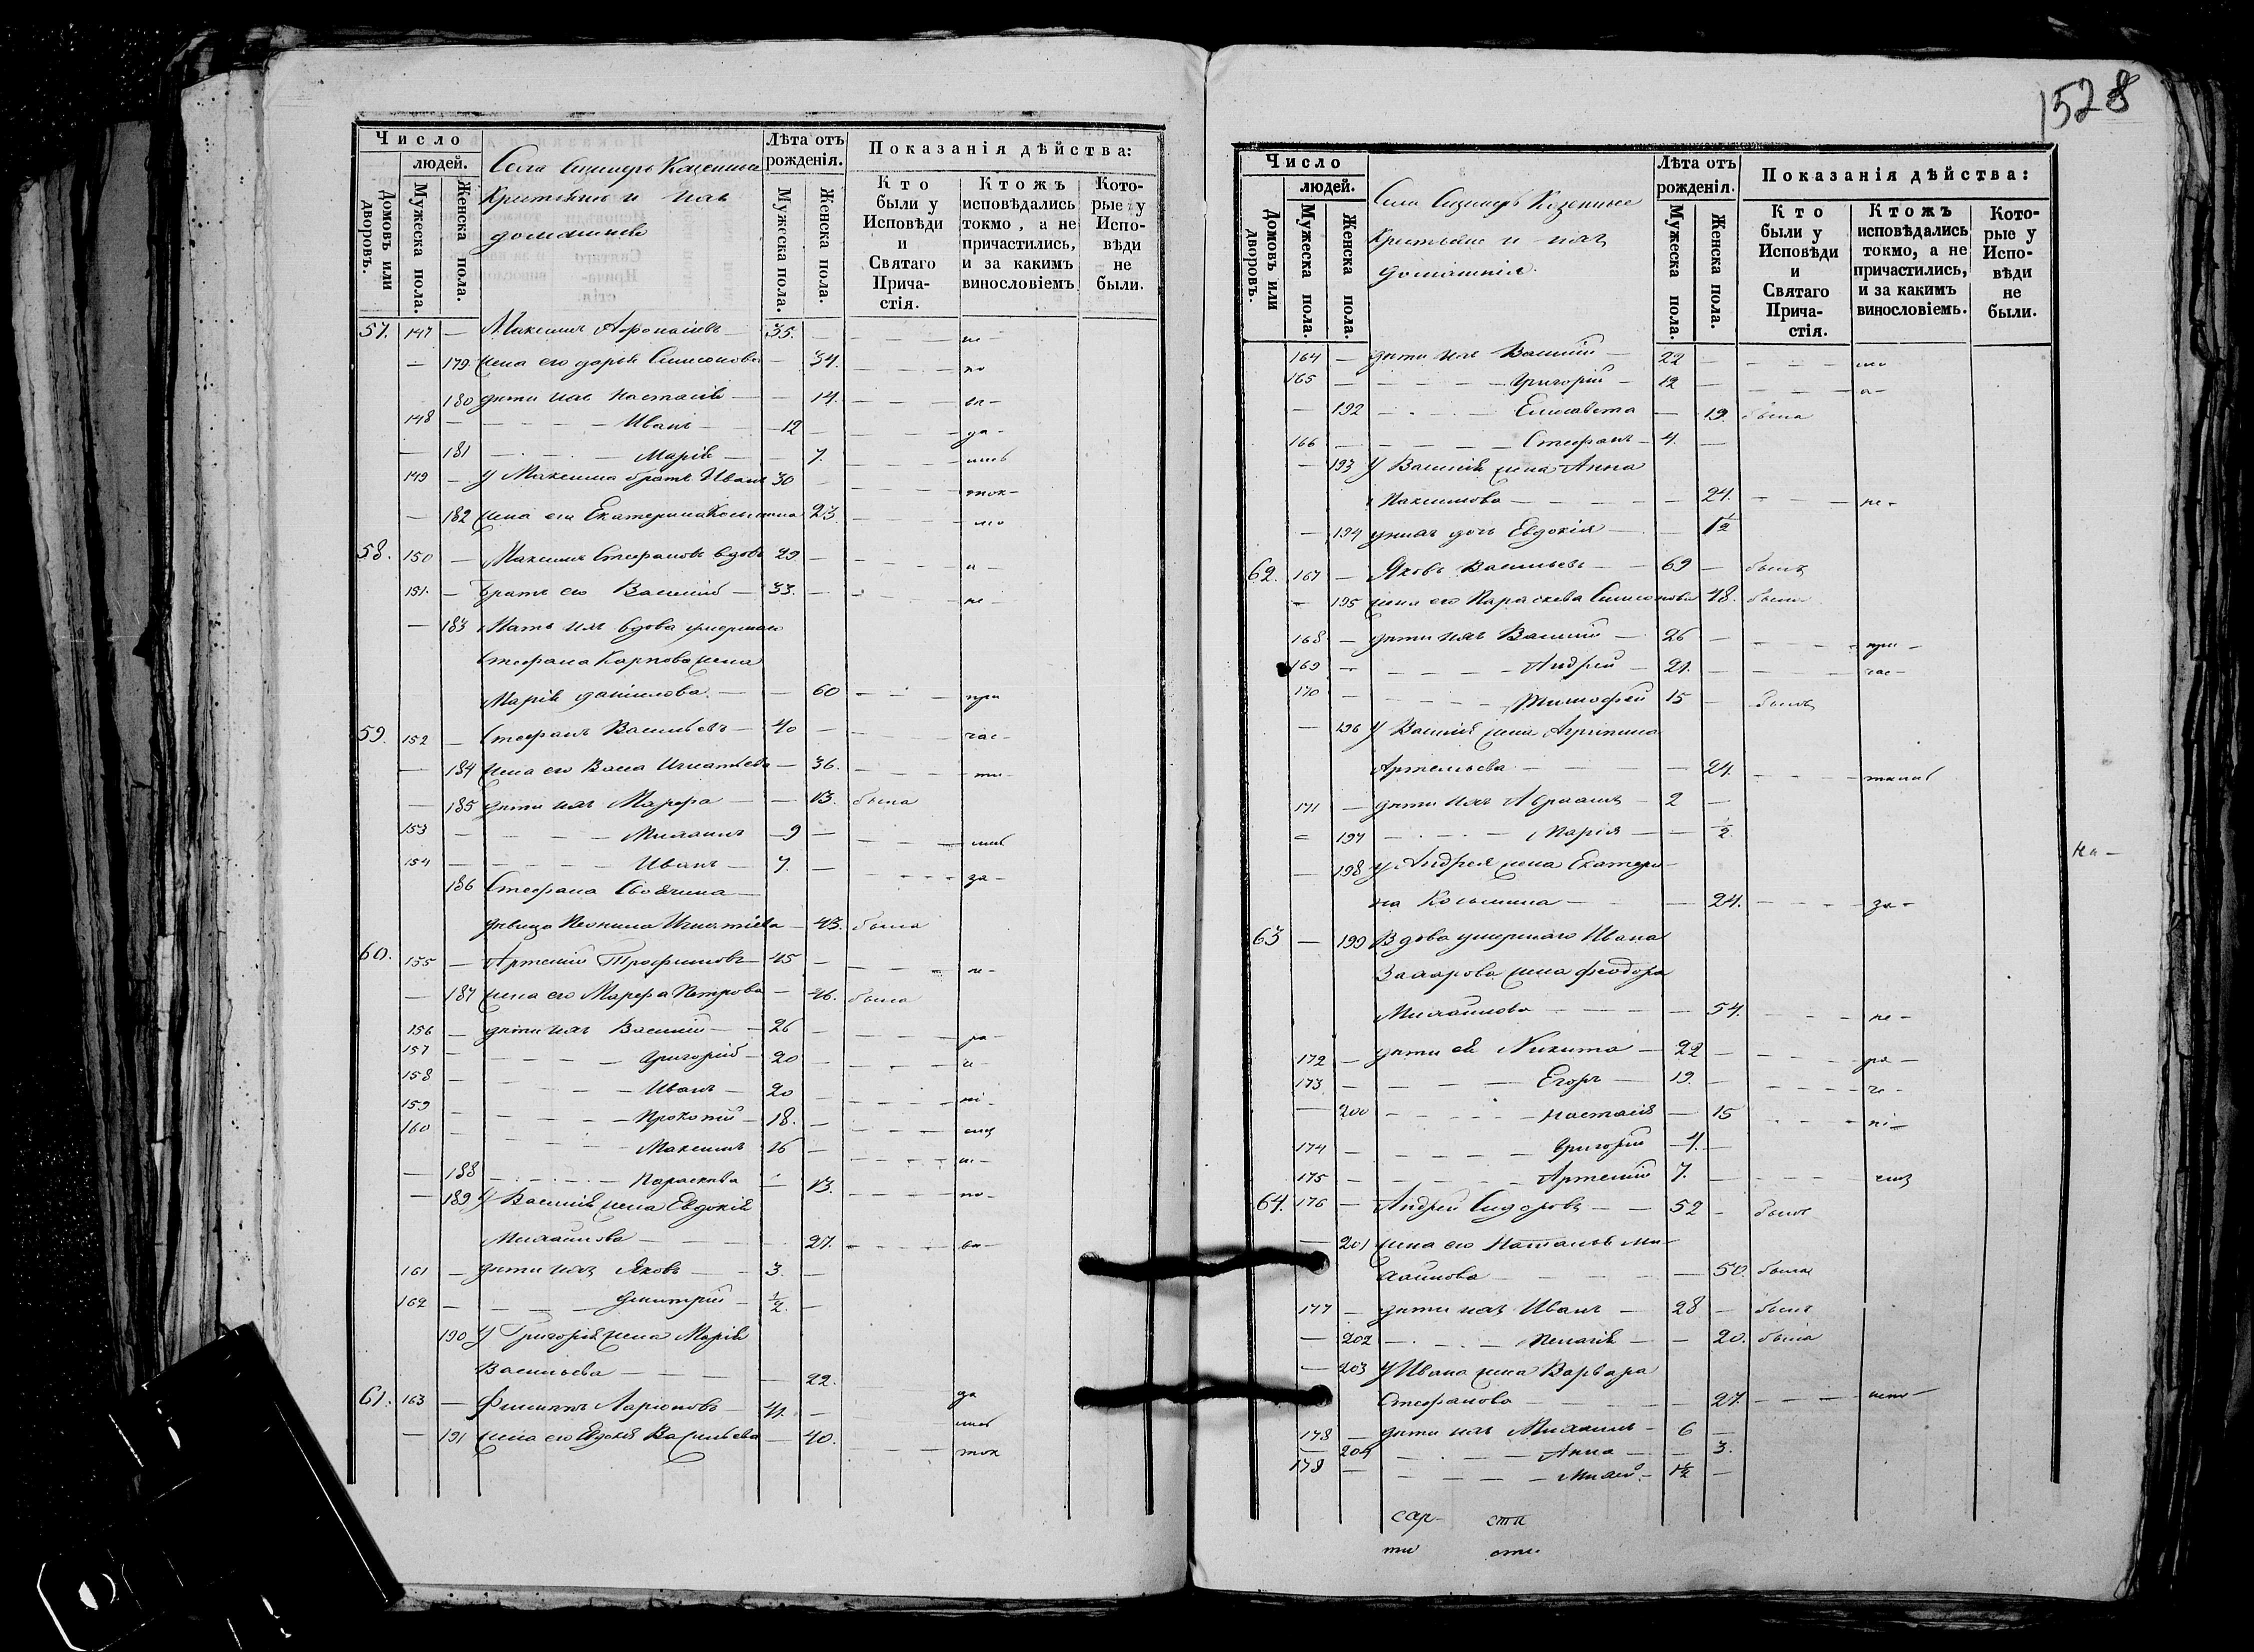 1528
Число
людей.
Домовъ или дворовъ.
Мужеска пола.
Женска пола.
Села
Крестьяне и ихъ
домашніе
Лѣта отъ рожденія.
Мужеска пола.
Женска пола.
Показанія дѣйства:
Кто были у Исповѣди и Святаго Причастія.
Ктожъ исповѣдались токмо, а не причастились, и за какимъ винословіемъ
Которые у Исповѣди не были.
57. 147 — Максимъ Афонасіевъ — 35. — — — — не —
— 179 жена его Дарья Симеонова — 34. — — — по
180 дѣти ихъ Настасія — — 14. — — — вѣ —
148 — — — — Иванъ — 12 — — — — да —
— 181 — — — Марія — — 7. — — — лись
149 — У Максима братъ Иванъ 30 — — — — ток —
— 182 жена его Екатерина Косьмина 23. — — — мо
58. 150 — Максимъ Стефановъ вдовъ 29 — — — — а —
151. — Братъ его Василій — 33. — — — — не —
— 183 Мать ихъ вдова умершаго
Стефана Карпова жена
Марія Данилова — — 60 — — — при
59. 152 — Стефанъ Васильевъ — 40 — — — — час —
— 184 жена его Васса Игнатьева — 36. — — — ти —
— 185 дѣти ихъ Марфа — — 13. была
153 — — — — Михаилъ — 9 — — — — лись
154 — — — — Иванъ — 7. — — — — за —
186 Стефана Своячина
дѣвица Неонила Игнатіева — 43. была
60. 155 — Артемій Трофимовъ — 45 — — — — н —
— 187 жена его Марфа Петрова — 46. была
156 — дѣти ихъ Василій — 26 — — — — ра —
157 — — — — Григорій — 20 — — — —
158 — — — — Иванъ — 20 — — — — ні —
159 — — — — Прокопій — 18. — — — —
160 — — — — Максимъ 16 — — — —
— 188 — — — Параскева — 13. — — — по —
— 189 У Василія жена Евдокія
Михайлова — — 27. — — — вѣ —
161 — дѣти ихъ Яковъ — 3. —
162 — — — — Дмитрій — ½. —
190 У Григорія жена Марія
Васильева — — — 22. да
61. 163 — Филиппъ Ларіоновъ — 41. — лись
— 191 жена его Евдокія Васильева — 40. — — ток
Число
людей.
Домовъ или дворовъ.
Мужеска пола.
Женска пола.
Села
Крестьяне и ихъ
домашніе.
Лѣта отъ рожденія.
Мужеска пола.
Женска пола.
Показанія дѣйства:
Кто были у Исповѣди и Святаго Причастія.
Ктожъ исповѣдались токмо, а не причастились, и за какимъ винословіемъ.
Которые у Исповѣди не были.
164 — дѣти ихъ Василій — 22 — — — — мо
165 — — — — Григорій — 12 — — — — а —
— 192 — — — Елисавета — 19. была
166 — — — — Стефанъ — 4. —
— 193 У Василія жена Анна
Максимова — — — 24. — — — не —
— 194 у нихъ дочь Евдокія — 1½
62. 167 — Яковъ Васильевъ — 69 — былъ
— 195 жена его Параскева Симеонова 48. была
168 — дѣти ихъ Василій — 26 — — — — при —
169 — — — — Андрей — 21. — — — — час —
170 — — — — Тимофей 15 — былъ
— 196 У Василія жена Агрипина
Артемьева — — — 24. — — — тились
171 — дѣти ихъ Авраамъ — 2 —
— 197 — — — Марія — — ½
— 198 У Андрея жена Екатери-
на Косьмина — — 24. — — — за —
63 — 199 Вдова умершаго Ивана
Захарова жена Феодора
Михайлова — — — 54. — — — не —
172 — дѣти ея Никита — 22 — — — — ра —
173 — — — — Егоръ — 19. — — — —
— 200 — — — Настасія — 15 — — — ні —
174 — — — — Григорій — 4. —
175 — — — — Артемій 7. — — — —
64. 176 — Андрей Сидоровъ — 52 — былъ
— 201 жена его Наталья Ми-
хайлова — — — 50. была
177 — дѣти ихъ Иванъ — 28 — былъ
— 202 — — — Пелагія — — 20. была
— 203 У Ивана жена Варвара
Стефанова — — — 27. — — —
178 — дѣти ихъ Михаилъ — 6 —
— 204 — — — Анна — — 3.
178 — — — — 1½ —